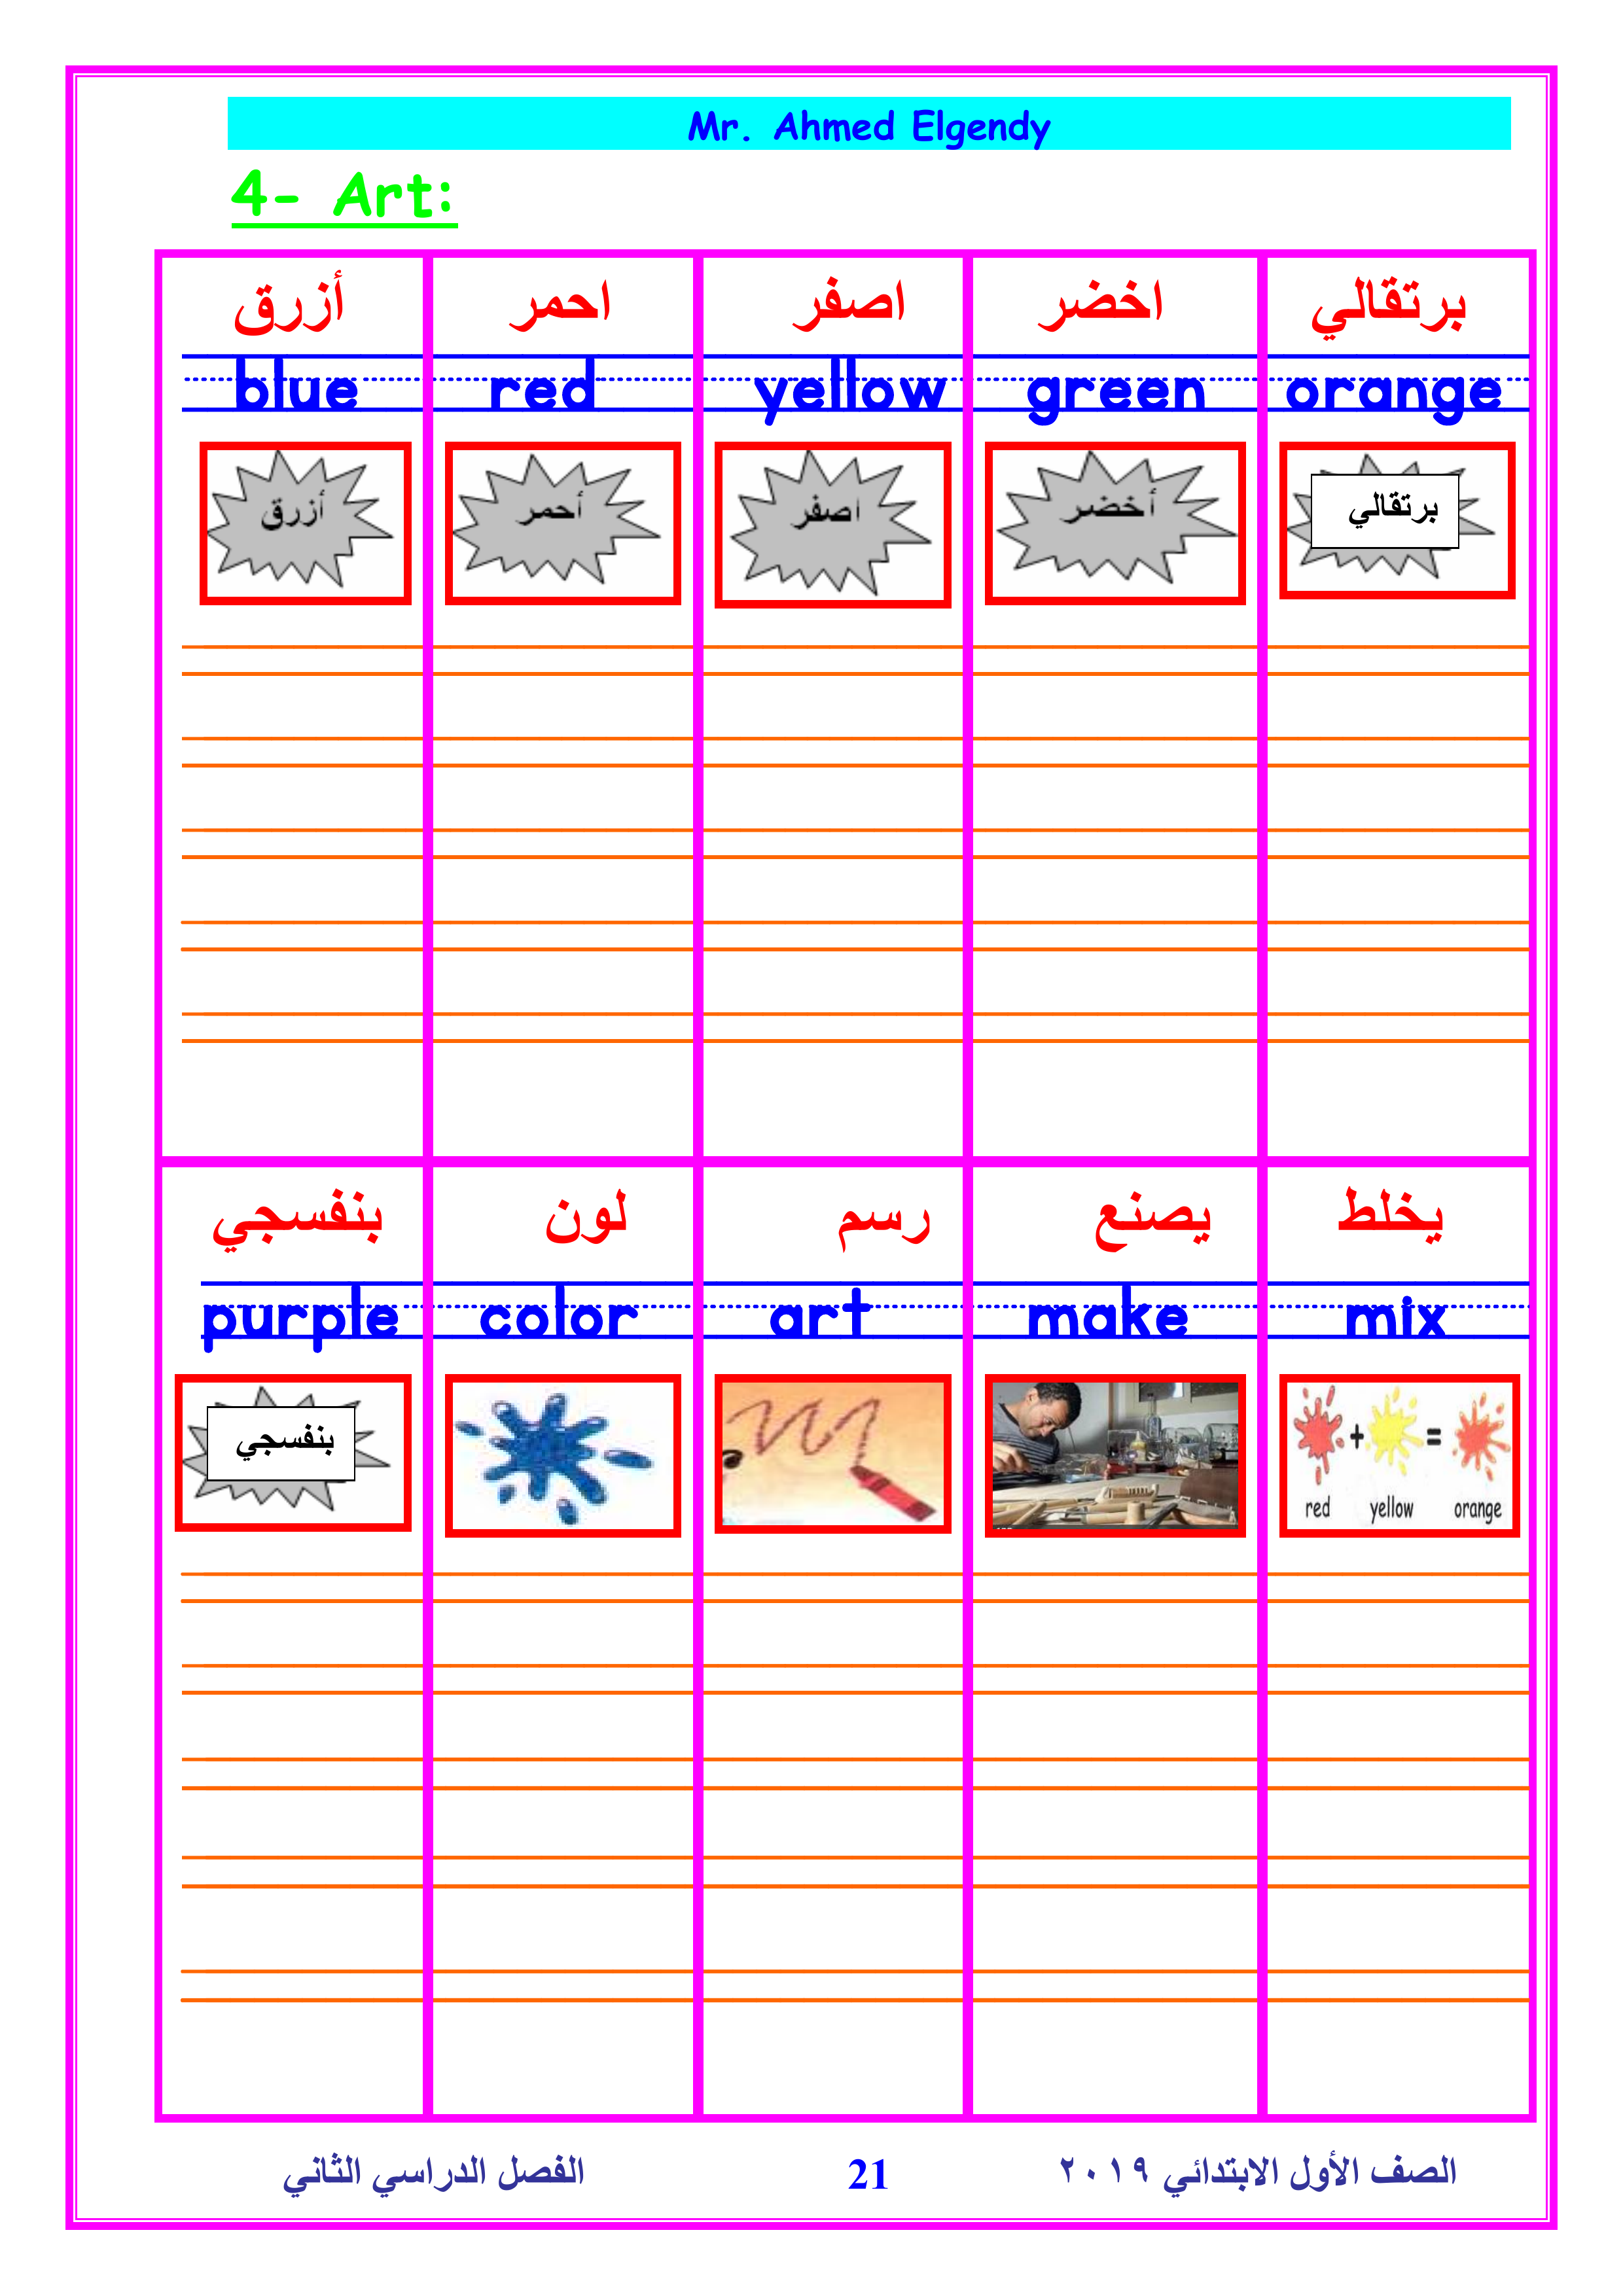 Mr. Ahmed Elgendy
4- Art:
أزرق احمر اصفر اخضر برتقالي
blue red yellow green orange
أزرق أحمر اصفر أخضر برتقالي
بنفسجي لون رسم يصنع يخلط
purple color art make mix
بنفسجي + =
red yellow orange
الصف الأول الابتدائي ٢٠١٩ 21 الفصل الدراسي الثاني